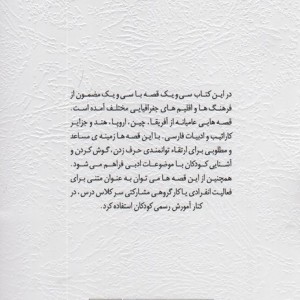 در این کتاب سی و یک قصه با سی و یک مضمون از
فرهنگ ها و اقلیم های جغرافیایی مختلف آمده است.
قصه هایی عامیانه از آفریقا، چین، اروپا، هند و جزایر
کارائیب و ادبیات فارسی. با این قصه ها زمینه ی مساعد
و مطلوبی برای ارتقاء توانمندی حرف زدن، گوش کردن و
آشنایی کودکان با موضوعات ادبی فراهم می شود.
همچنین از این قصه ها می توان به عنوان متنی برای
فعالیت انفرادی یا کار گروهی مشارکتی سر کلاس درس، در
کنار آموزش رسمی کودکان استفاده کرد.